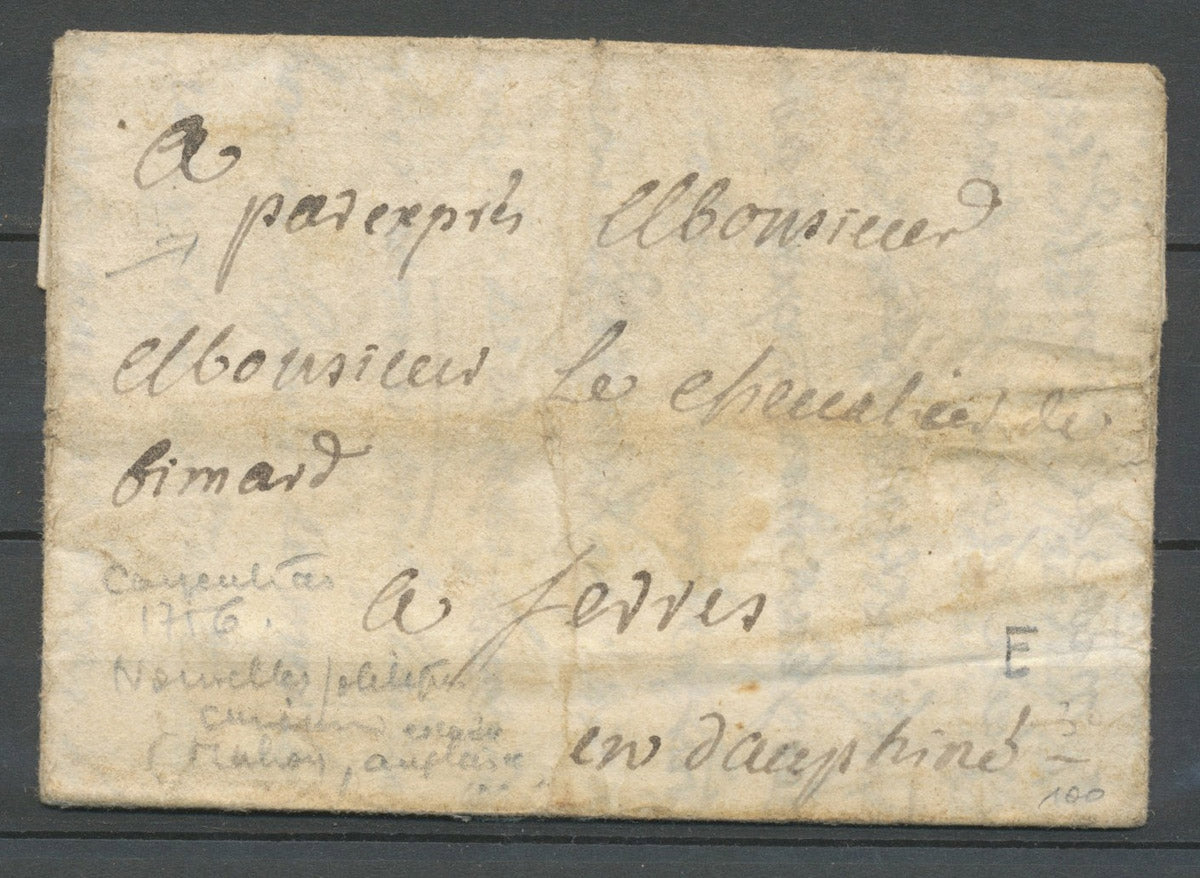 A
par exprès Monsieur
Monsieur Le chevalier de
bimard
a serres
en dauphiné
Carpentras
1756.
Nouvelles politiques
Mahon, anglais
E
100